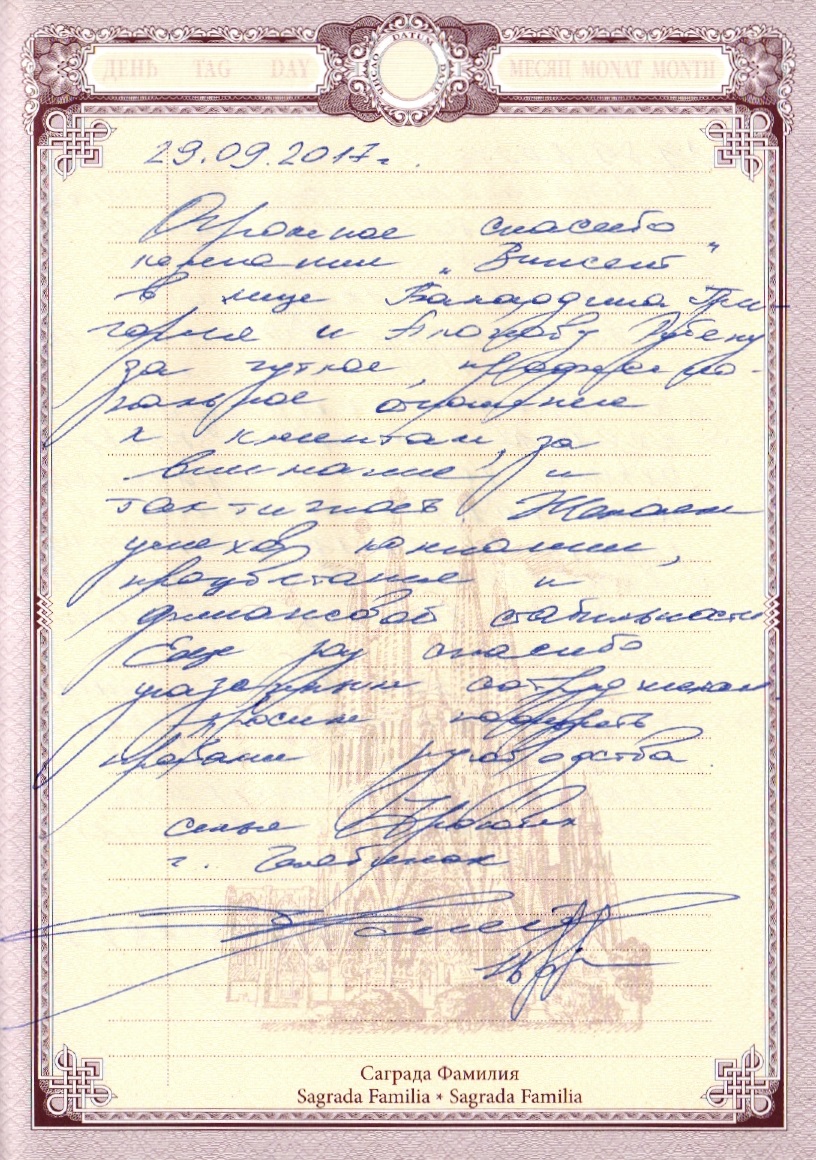 ДЕНЬ TAG DAY
DATUM
МЕСЯЦ MONAT MONTH
29.09.2017г.
Огромное спасибо
компании „Винсент"
в лице
и
за чуткое, профессио-
нальное отношение
к клиентам, за
внимание и
тактичность. Желаем
успехов компании,
процветание и
финансовой стабильности
Еще раз спасибо
указанным сотрудникам.
просим поощрить
премами руководства.
семья
г. Челябинск
Саграда Фамилия
Sagrada Familia * Sagrada Familia